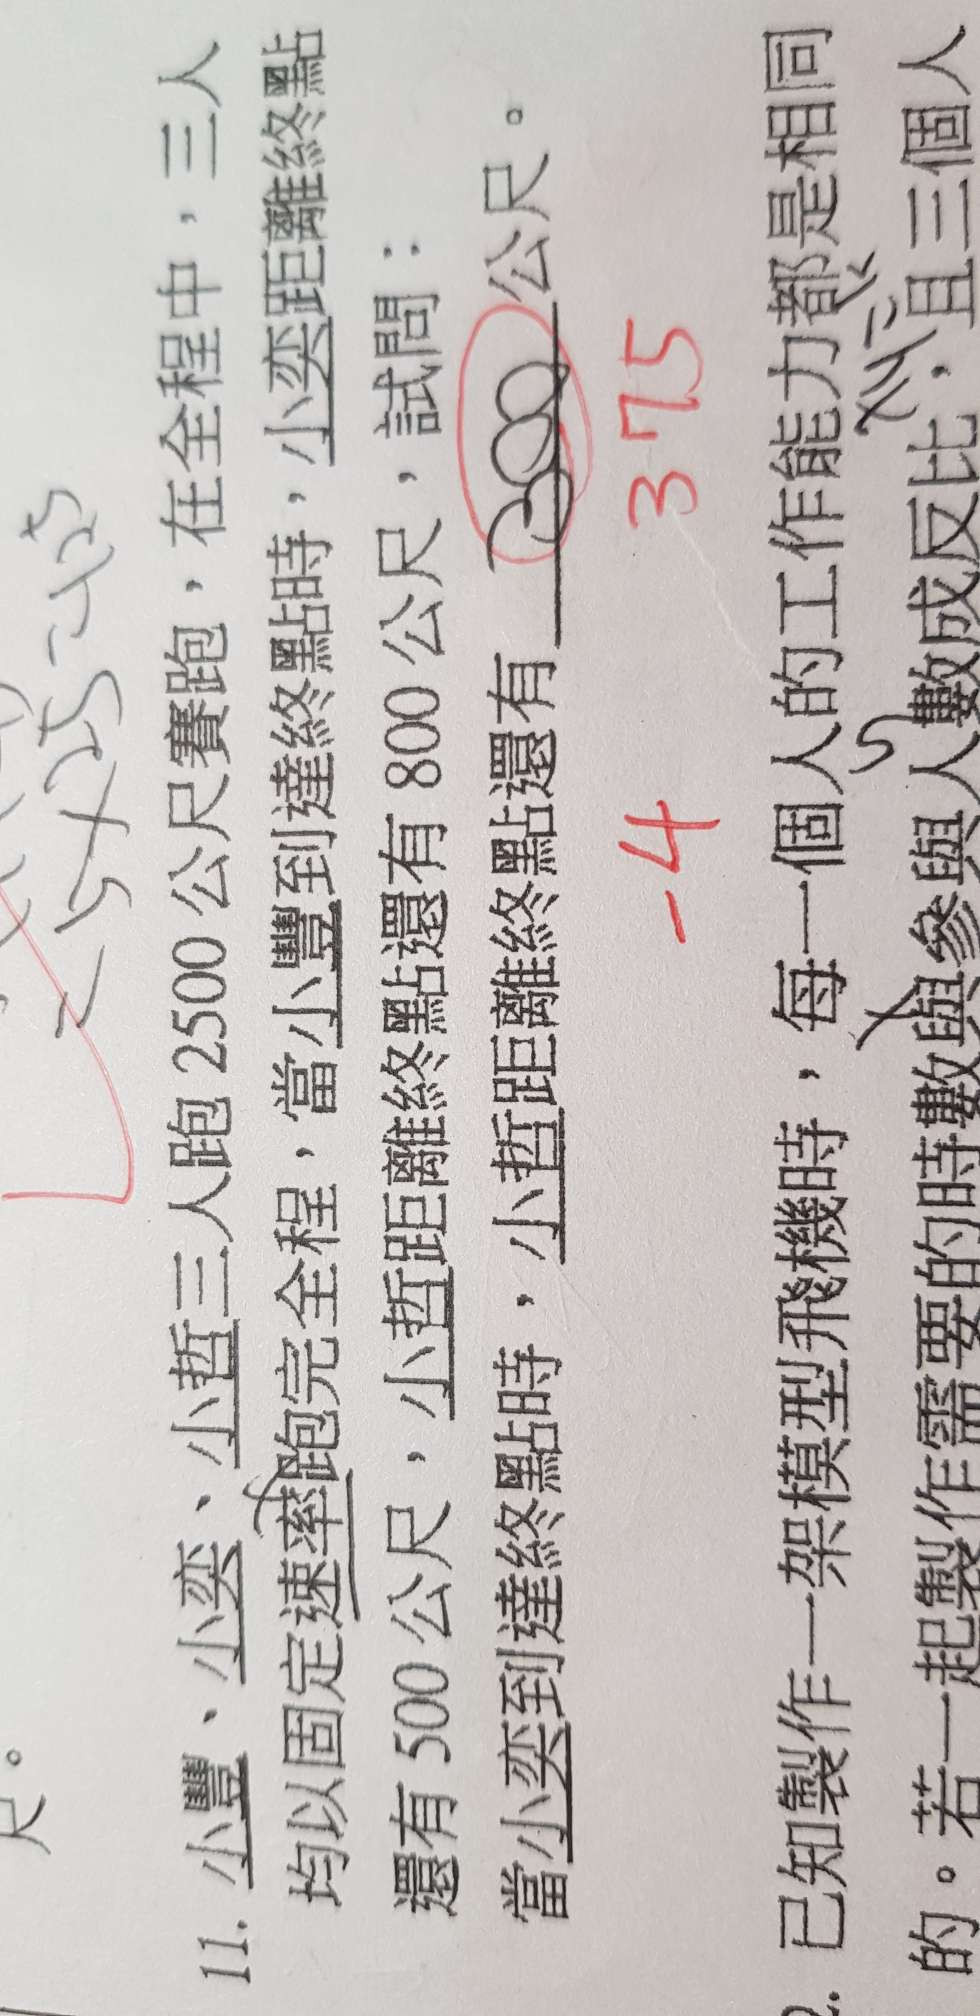 尺。
11. 小豐、小奕、小哲三人跑 2500 公尺賽跑，在全程中，三人
均以固定速率跑完全程，當小豐到達終點時，小奕距離終點
還有 500 公尺，小哲距離終點還有 800 公尺，試問：
當小奕到達終點時，小哲距離終點還有 300 公尺。
-4 375
2. 已知製作一架模型飛機時，每一個人的工作能力都是相同
的。若一起製作需要的時數與參與人數成反比，且三個人